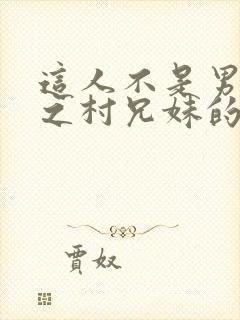 這人不是男
之村兄妹的
賈奴